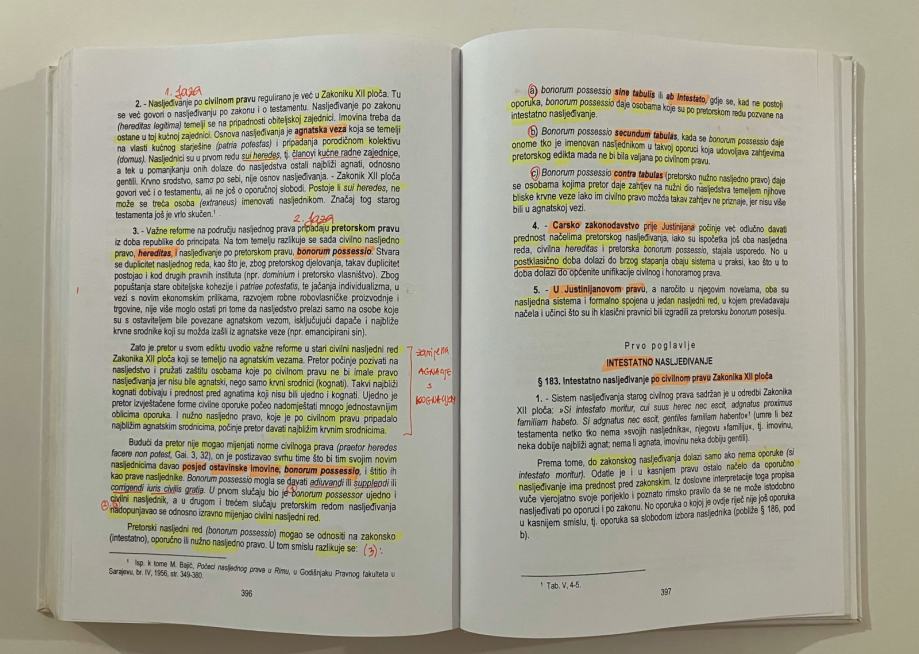 1. faza
2. - Nasljeđivanje po civilnom pravu regulirano je već u Zakoniku XII ploča. Tu
se već govori o nasljeđivanju po zakonu i o testamentu. Nasljeđivanje po zakonu
(hereditas legitima) temelji se na pripadnosti obiteljskoj zajednici. Imovina treba da
ostane u toj kućnoj zajednici. Osnova nasljeđivanja je agnatska veza koja se temelji
na vlasti kućnog starješine (patria potestas) i pripadanja porodičnom kolektivu
(domus). Nasljednici su u prvom redu sui heredes, tj. članovi kućne radne zajednice,
a tek u pomanjkanju onih dolaze do nasljedstva ostali najbliži agnati, odnosno
gentili. Krvno srodstvo, samo po sebi, nije osnov nasljeđivanja. - Zakonik XII ploča
govori već i o testamentu, ali ne još o oporučnoj slobodi. Postoje li sui heredes, ne
može se treća osoba (extraneus) imenovati nasljednikom. Značaj tog starog
testamenta još je vrlo skučen.¹
2. faza
3. - Važne reforme na području nasljednog prava pripadaju pretorskom pravu
iz doba republike do principata. Na tom temelju razlikuje se sada civilno nasljedno
pravo, hereditas, i nasljeđivanje po pretorskom pravu, bonorum possessio. Stvara
se duplicitet nasljednog reda, kao što je, zbog pretorskog djelovanja, takav duplicitet
postojao i kod drugih pravnih instituta (npr. dominium i pretorsko vlasništvo). Zbog
popuštanja stare obiteljske kohezije i patriae potestatis, te jačanja individualizma, u
vezi s novim ekonomskim prilikama, razvojem robne robovlasničke proizvodnje i
trgovine, nije više moglo ostati pri tome da nasljedstvo prelazi samo na osobe koje
su s ostaviteljem bile povezane agnatskom vezom, isključujući dapače i najbliže
krvne srodnike koji su možda izašli iz agnatske veze (npr. emancipirani sin).
Zato je pretor u svom ediktu uvodio važne reforme u stari civilni nasljedni red
Zakonika XII ploča koji se temeljio na agnatskim vezama. Pretor počinje pozivati na
nasljedstvo i pružati zaštitu osobama koje po civilnom pravu ne bi imale pravo
nasljeđivanja jer nisu bile agnati, nego samo krvni srodnici (kognati). Takvi najbliži
kognati dobivaju i prednost pred agnatima koji nisu bili ujedno i kognati. Ujedno je
pretor izvještačene forme civilne oporuke počeo nadomještati mnogo jednostavnijim
oblicima oporuka. I nužno nasljedno pravo, koje je po civilnom pravu pripadalo
najbližim agnatskim srodnicima, počinje pretor davati najbližim krvnim srodnicima.
zamjena
AGNACIJE
S
KOGNACIJOM
Budući da pretor nije mogao mijenjati norme civilnoga prava (praetor heredes
facere non potest, Gai. 3, 32), on je postizavao svrhu time što bi tim svojim novim
nasljednicima davao posjed ostavinske imovine, bonorum possessio, i štitio ih
kao prave nasljednike. Bonorum possessio mogla se davati adiuvandi ili supplendi ili
corrigendi iuris civilis gratia. U prvom slučaju bio je bonorum possessor ujedno i
civilni nasljednik, a u drugom i trećem slučaju pretorskim redom nasljeđivanja
nadopunjavao se odnosno izravno mijenjao civilni nasljedni red.
Pretorski nasljedni red (bonorum possessio) mogao se odnositi na zakonsko
(intestatno), oporučno ili nužno nasljedno pravo. U tom smislu razlikuje se: (3):
¹ Isp. k tome M. Bajić, Počeci nasljednog prava u Rimu, u Godišnjaku Pravnog fakulteta u
Sarajevu, br. IV, 1956, str. 349-380.
396
a) bonorum possessio sine tabulis ili ab intestato, gdje se, kad ne postoji
oporuka, bonorum possessio daje osobama koje su po pretorskom redu pozvane na
intestatno nasljeđivanje.
b) Bonorum possessio secundum tabulas, kada se bonorum possessio daje
onome tko je imenovan nasljednikom u takvoj oporuci koja udovoljava zahtjevima
pretorskog edikta mada ne bi bila valjana po civilnom pravu.
c) Bonorum possessio contra tabulas (pretorsko nužno nasljedno pravo) daje
se osobama kojima pretor daje zahtjev na nužni dio nasljedstva temeljem njihove
bliske krvne veze iako im civilno pravo možda takav zahtjev ne priznaje, jer nisu više
bili u agnatskoj vezi.
4. - Carsko zakonodavstvo prije Justinijana počinje već odlučno davati
prednost načelima pretorskog nasljeđivanja, iako su ispočetka još oba nasljedna
reda, civilna hereditas i pretorska bonorum possessio, stajala usporedo. No u
postklasično doba dolazi do brzog stapanja obaju sistema u praksi, kao što u to
doba dolazi do općenite unifikacije civilnog i honorarnog prava.
5. - U Justinijanovom pravu, a naročito u njegovim novelama, oba su
nasljedna sistema i formalno spojena u jedan nasljedni red, u kojem prevladavaju
načela i učinci što su ih klasični pravnici bili izgradili za pretorsku bonorum posesiju.
Prvo poglavlje
INTESTATNO NASLJEĐIVANJE
§ 183. Intestatno nasljeđivanje po civilnom pravu Zakonika XII ploča
1. - Sistem nasljeđivanja starog civilnog prava sadržan je u odredbi Zakonika
XII ploča: »Si intestato moritur, cui suus herec nec escit, adgnatus proximus
familiam habeto. Si adgnatus nec escit, gentiles familiam habento«¹ (umre li bez
testamenta netko tko nema »svojih nasljednika«, njegovu »familiju«, tj. imovinu,
neka dobije najbliži agnat; nema li agnata, imovinu neka dobiju gentili).
Prema tome, do zakonskog nasljeđivanja dolazi samo ako nema oporuke (si
intestato moritur). Odatle je i u kasnijem pravu ostalo načelo da oporučno
nasljeđivanje ima prednost pred zakonskim. Iz doslovne interpretacije toga propisa
vuče vjerojatno svoje porijeklo i poznato rimsko pravilo da se ne može istodobno
nasljeđivati po oporuci i po zakonu. No oporuka o kojoj je ovdje riječ nije još oporuka
u kasnijem smislu, tj. oporuka sa slobodom izbora nasljednika (pobliže § 186, pod
b).
¹ Tab. V, 4-5.
397